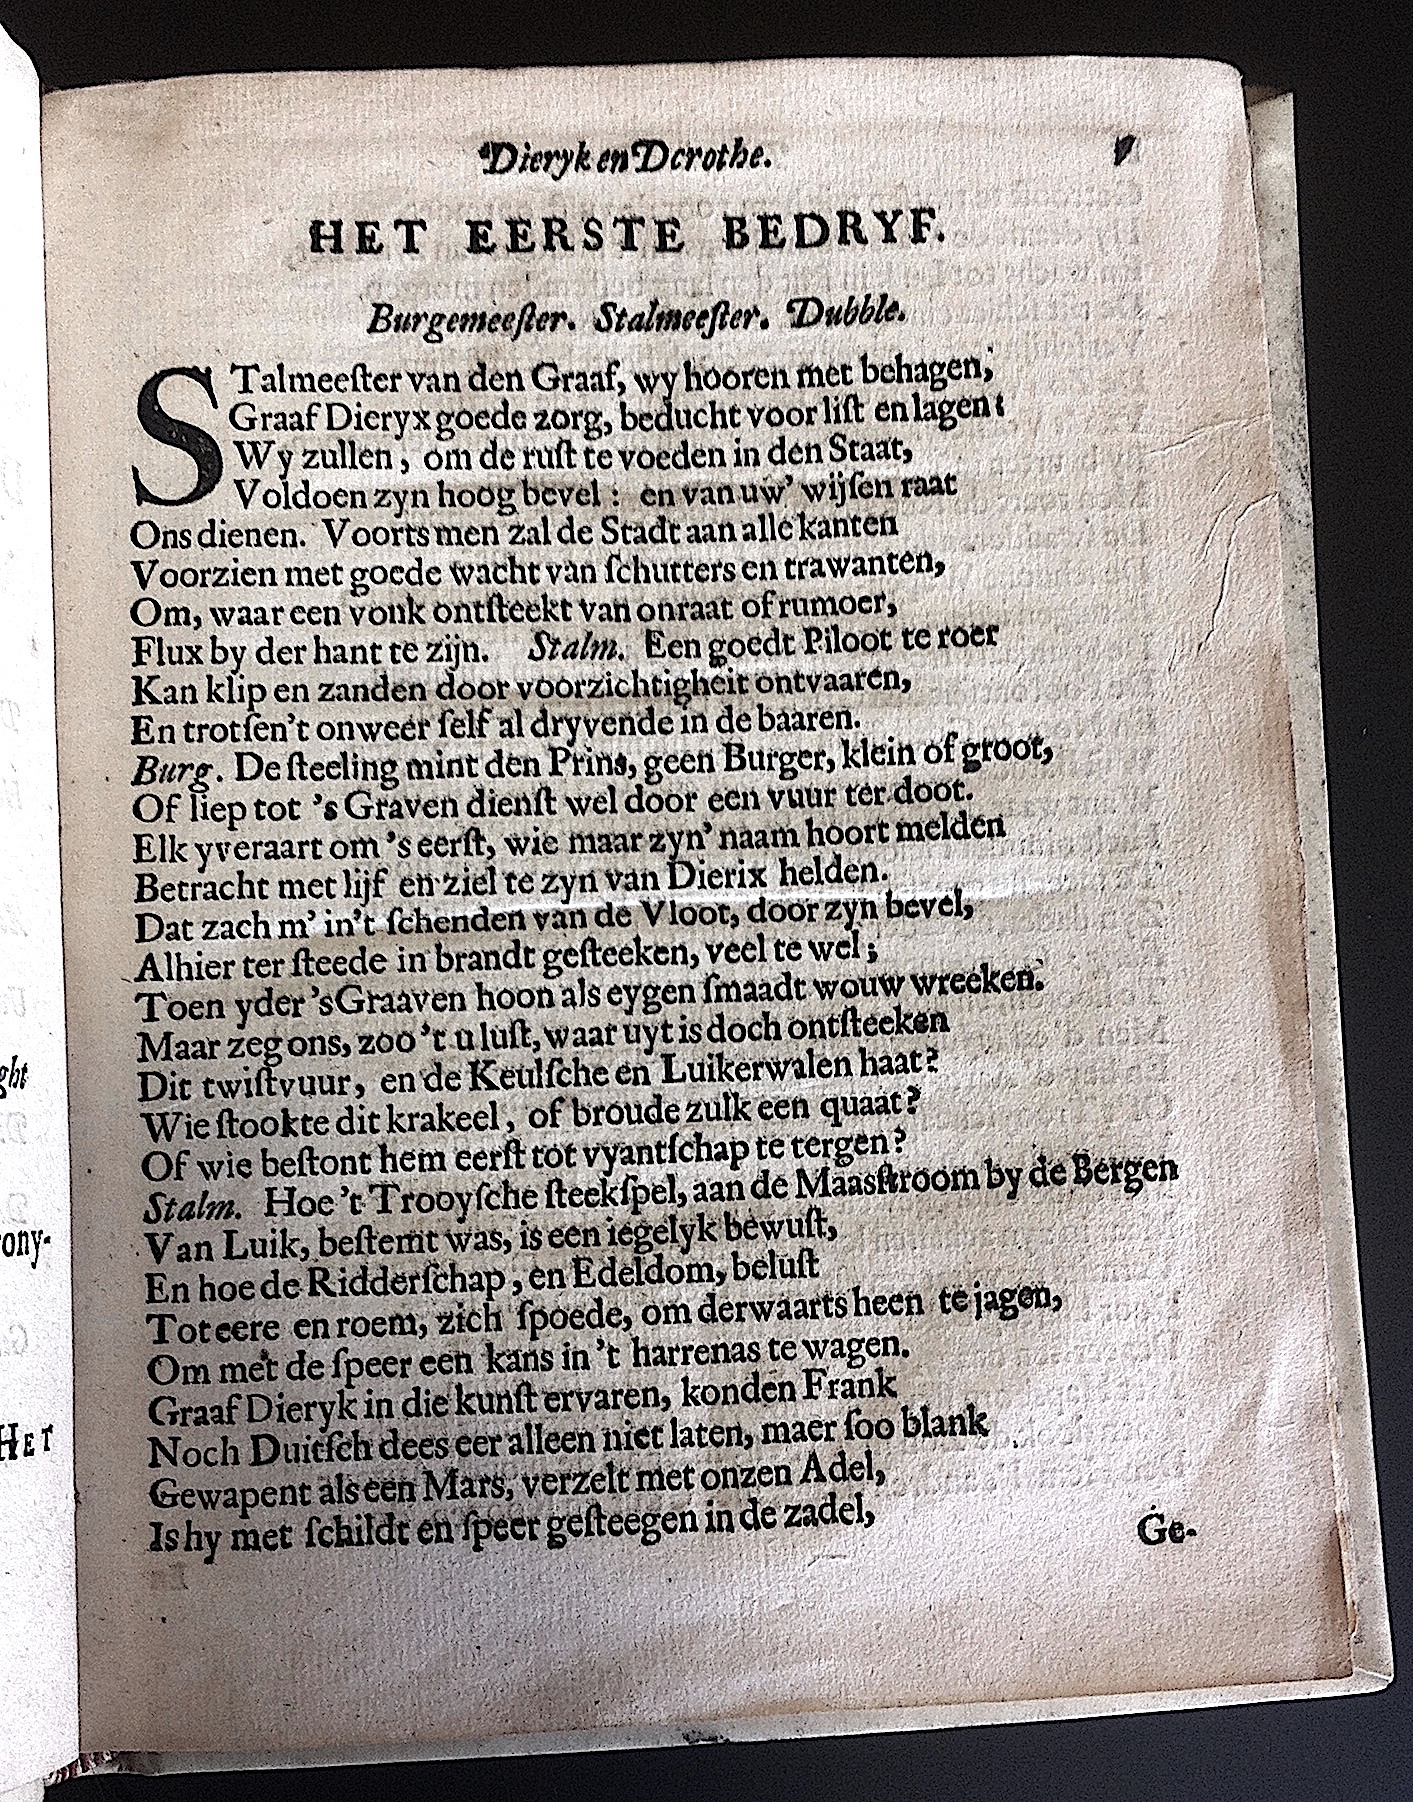 Dieryk en Dcrothe.
HET EERSTE BEDRYF.
Burgemeeſter. Stalmeeſter. Dubble.
STalmeeſter van den Graaf, wy hooren met behagen,
Graaf Dieryx goede zorg, beducht voor liſt en lagen:
Wy zullen, om de ruſt te voeden in den Staat,
Voldoen zyn hoog bevel: en van uw' wijſen raat
Ons dienen. Voorts men zal de Stadt aan alle kanten
Voorzien met goede wacht van ſchutters en trawanten,
Om, waar een vonk ontſteekt van onraat of rumoer,
Flux by der hant te zijn. Stalm. Een goedt Piloot te roer
Kan klip en zanden door voorzichtigheit ontvaaren,
En trotſen't onweer ſelf al dryvende in de baaren.
Burg. De ſteeling mint den Prins, geen Burger, klein of groot,
Of liep tot 's Graven dienſt wel door een vuur ter doot.
Elk yveraart om 's eerſt, wie maar zyn' naam hoort melden
Betracht met lijf en ziel te zyn van Dierix helden.
Dat zach m' in't ſchenden van de Vloot, door zyn bevel,
Alhier ter ſteede in brandt geſteeken, veel te wel;
Toen yder 's Graaven hoon als eygen ſmaadt wouw wreeken.
Maar zeg ons, zoo 't u luſt, waar uyt is doch ontſteeken
Dit twiſtvuur, en de Keulſche en Luikerwalen haat?
Wie ſtookte dit krakeel, of broude zulk een quaat?
Of wie beſtont hem eerſt tot vyantſchap te tergen?
Stalm. Hoe 't Trooyſche ſteekſpel, aan de Maasſtroom by de Bergen
Van Luik, beſtemt was, is een iegelyk bewuſt,
En hoe de Ridderſchap, en Edeldom, beluſt
Tot eere en roem, zich ſpoede, om derwaarts heen te jagen,
Om met de ſpeer een kans in 't harrenas te wagen.
Graaf Dieryk in die kunſt ervaren, konden Frank
Noch Duitſch dees eer alleen niet laten, maer ſoo blank
Gewapent als een Mars, verzelt met onzen Adel,
Is hy met ſchildt en ſpeer geſteegen in de zadel,
Ge-
ght
ony-
HET